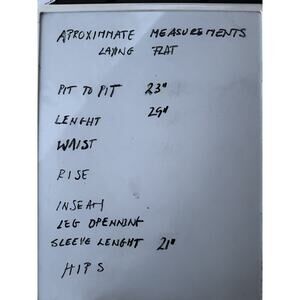 APROXIMMATE MEASUREMENTS
LAYING FLAT
PIT TO PIT 23"
LENGHT 29"
WAIST
RISE
INSEAM
LEG OPENNING
SLEEVE LENGHT 21"
HIPS